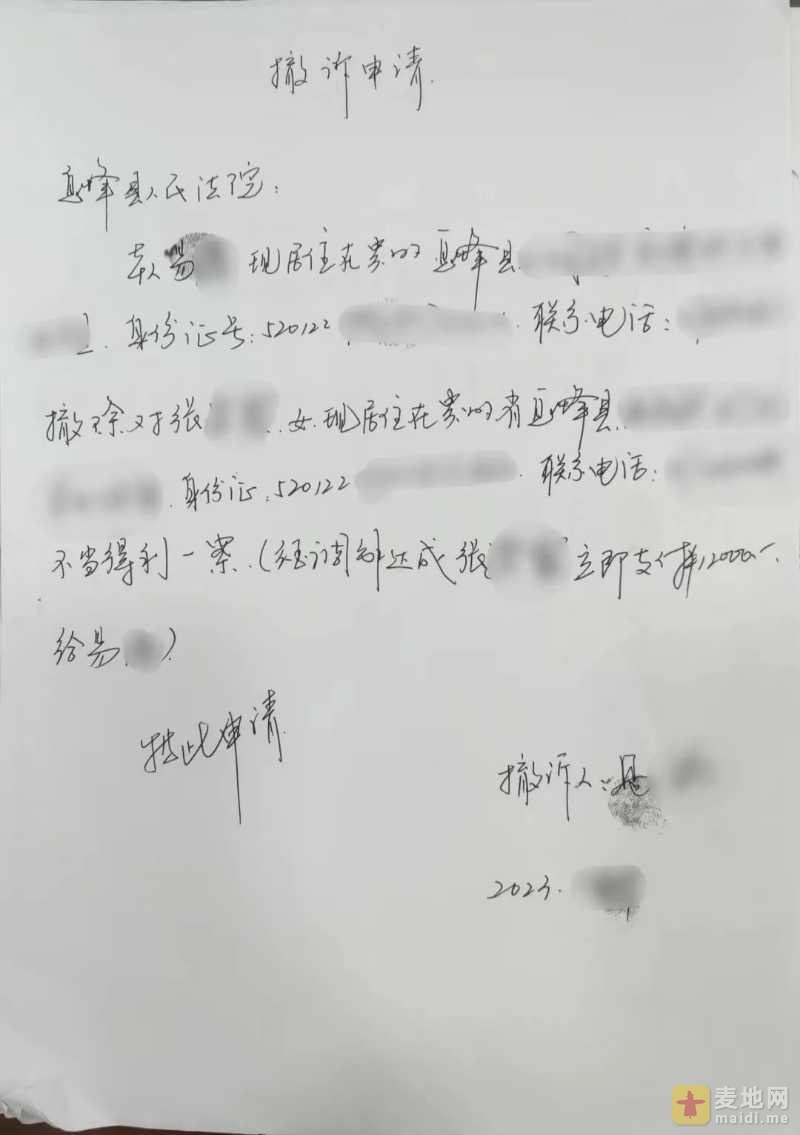 撤诉申请.
息烽县人民法院:
本人易 现居住在贵州 息烽县
身份证号:520122 联系电话:
撤 对张 .女.现居住在贵州省息烽县
身份证:520122 联系电话:
不当得利一案.(经调解达成张 立即支付 12000
给易 )
特此申请
撤诉人:易
2023.
麦地网
maidi.me